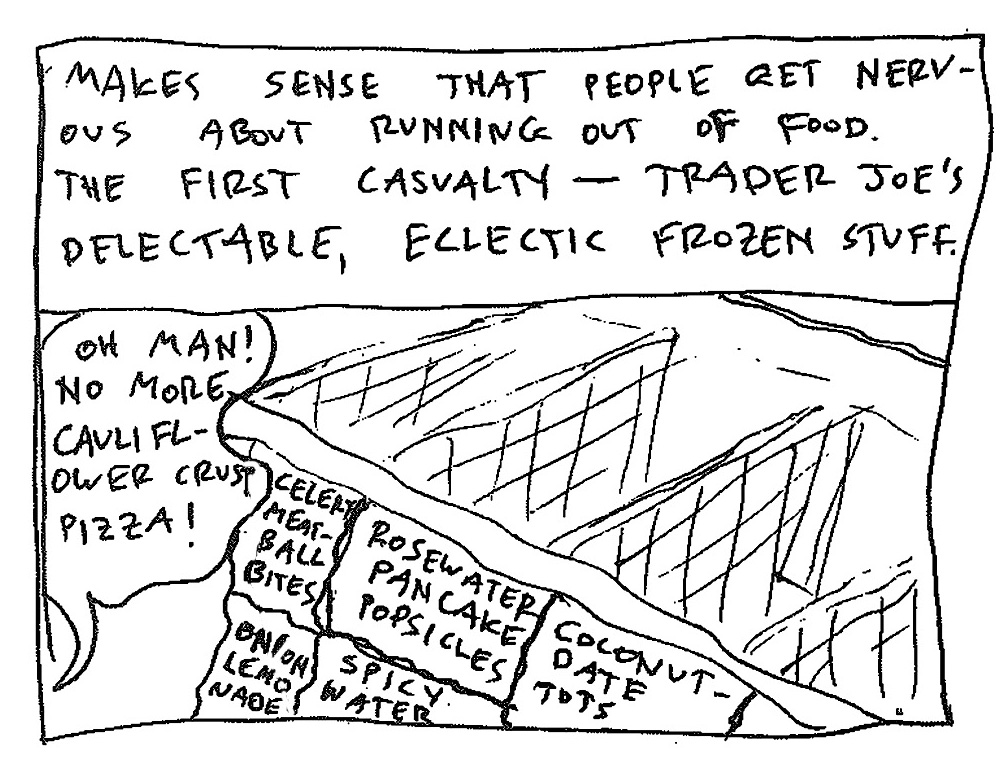 MAKES SENSE THAT PEOPLE GET NERV-
OUS ABOUT RUNNING OUT OF FOOD.
THE FIRST CASUALTY — TRADER JOE'S
DELECTABLE, ECLECTIC FROZEN STUFF.
OH MAN!
NO MORE
CAULIFL-
OWER CRUST
PIZZA!
CELERY
MEAT-
BALL
BITES
ROSEWATER
PANCAKE
POPSICLES
COCONUT-
DATE
TOTS
ONION
LEMO
NADE
SPICY
WATER